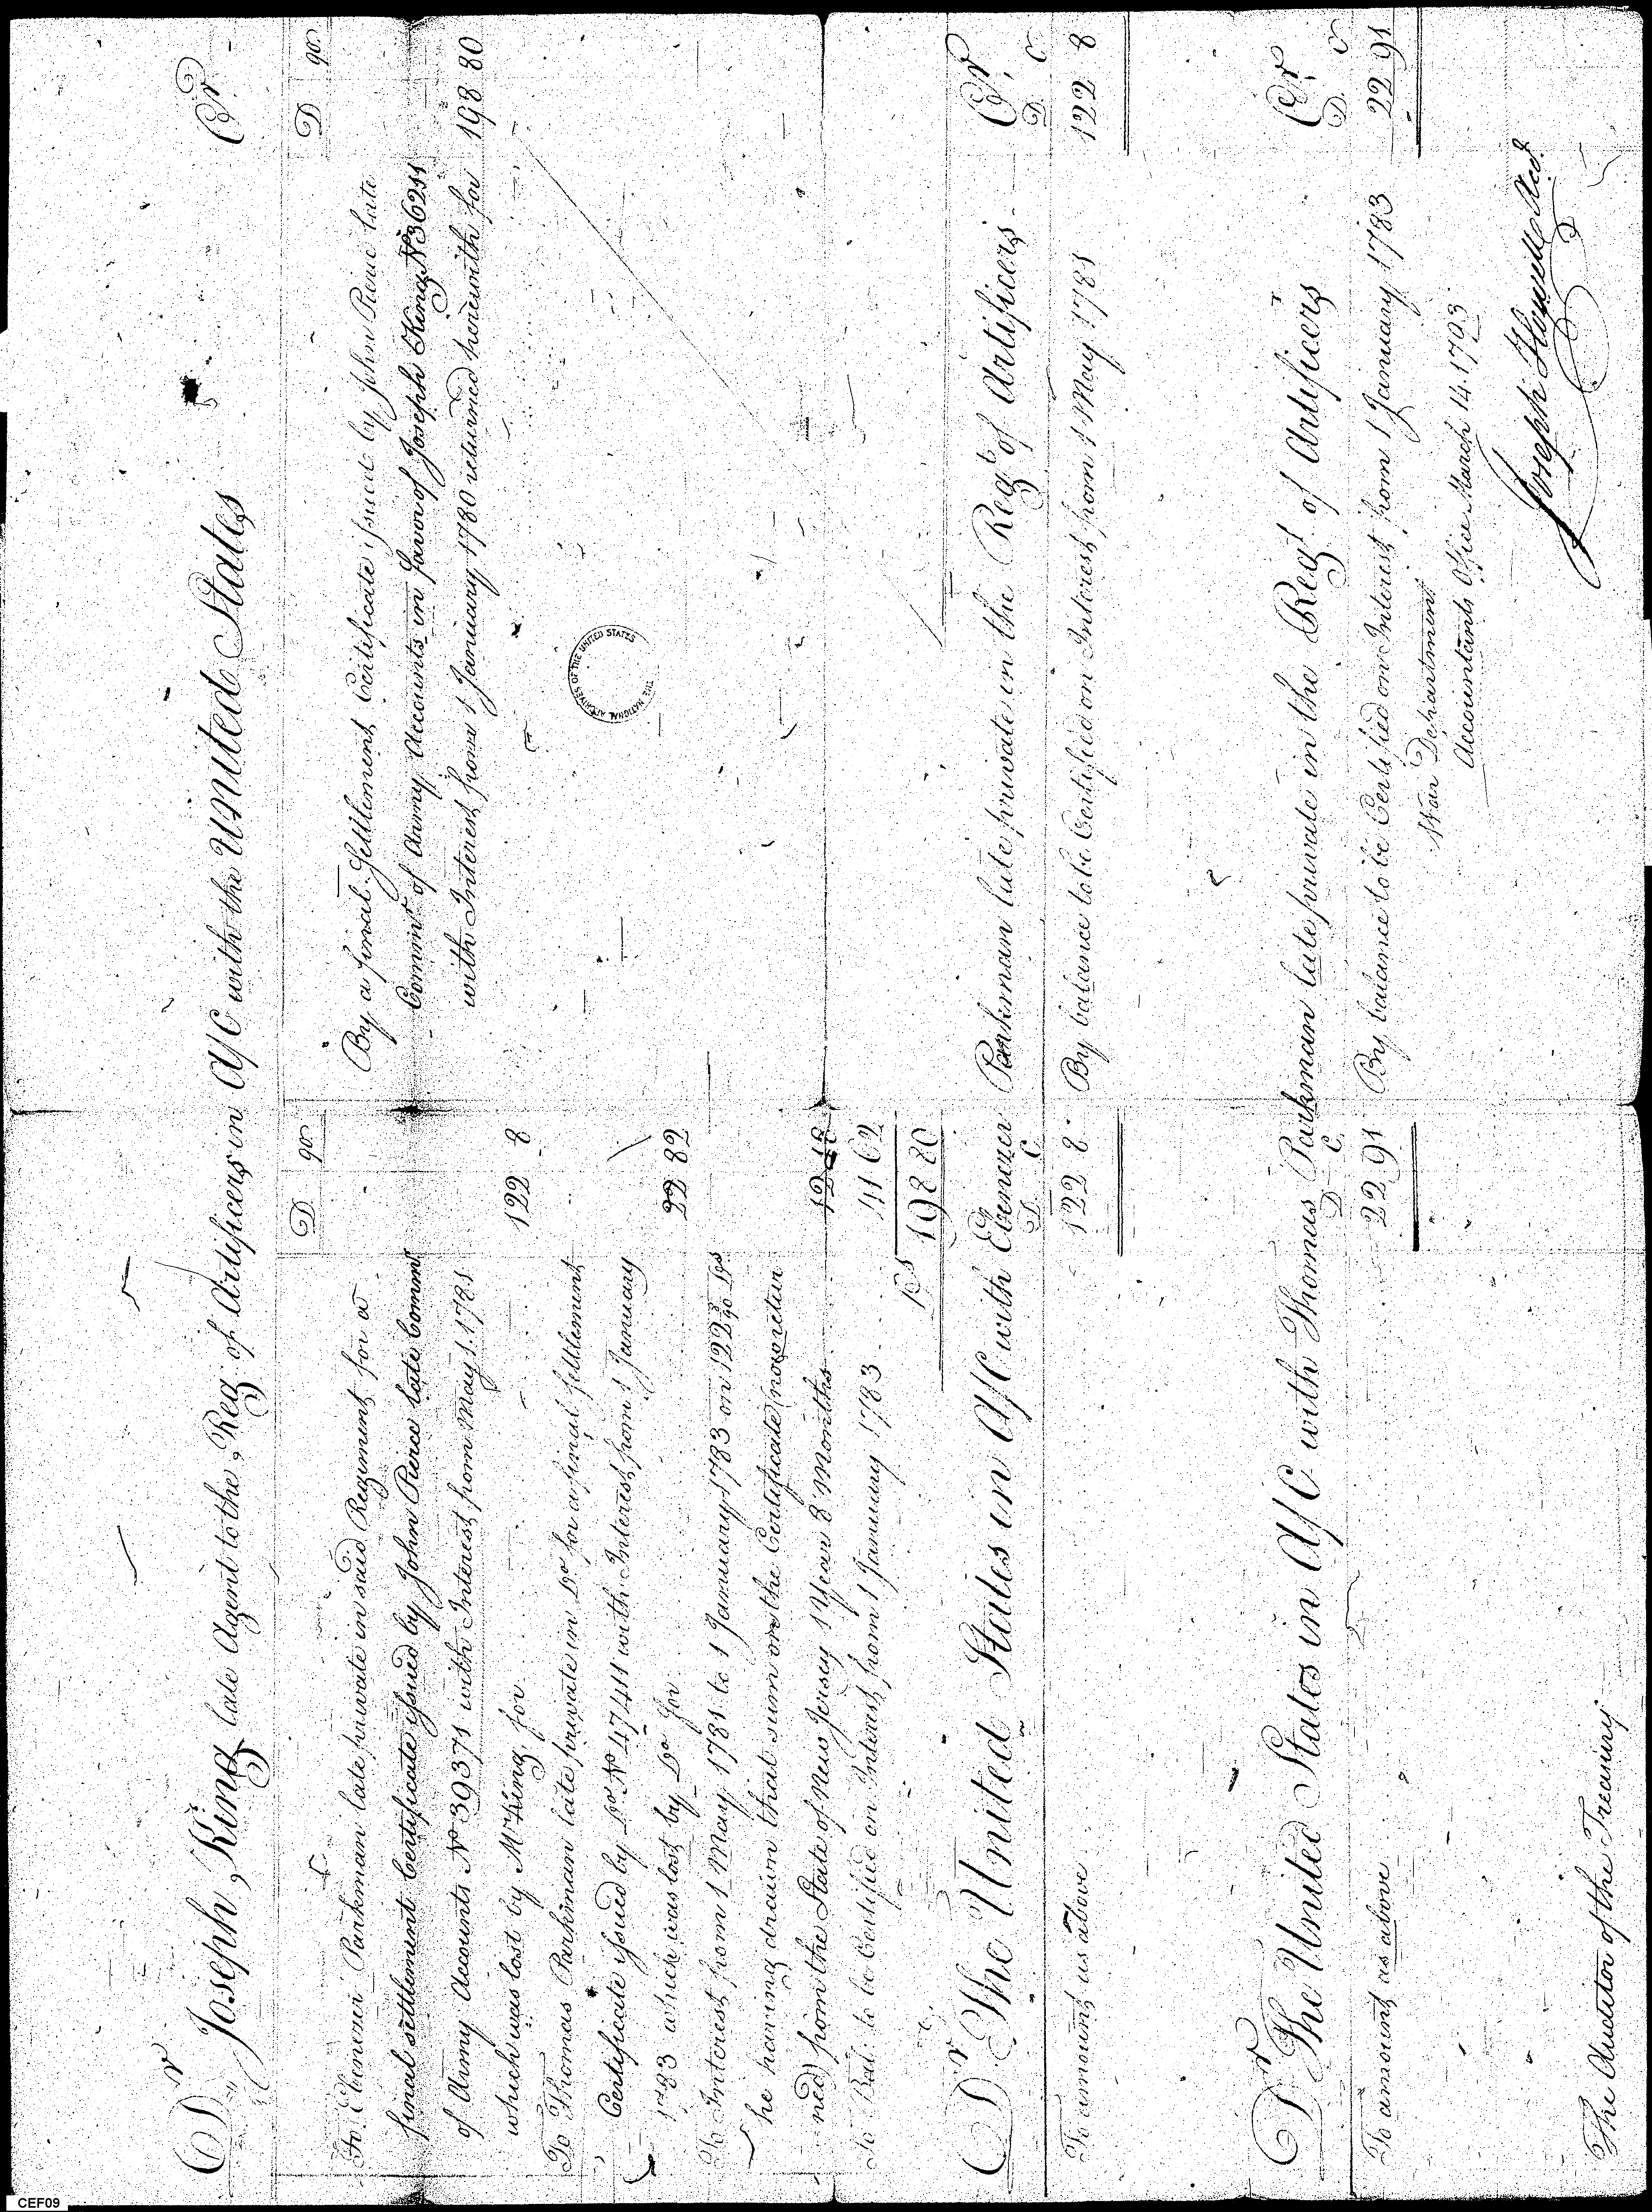 Dr Joseph King late Agent to the Reg of Artificers in A/C with the United States Cr
D 90
To Ebenezer Parkman late private in said Regiment for a
final settlement Certificate issued by John Pierce late Commr
of Army Accounts No 39371 with Interest from May 1. 1781
which was lost by Mr King, for 122 8
To Thomas Parkman late private in Do for a final settlement
Certificate issued by Do No 47411 with Interest from 1 January
1783 which was lost by Do for 22 82
To Interest from 1 May 1781 to 1 January 1783 on 122 8/90 Drs
he having drawn that sum on the Certificate (now retur
ned) from the State of New Jersey 1 Year 8 Months 12 18
To Bal: to be Certified on Interest from 1 January 1783 41 62
198 80
D 90
By a final Settlement Certificate issued by John Pierce late
Commr of Army Accounts in favor of Joseph King No 36211
with Interest from 1 January 1780 returned herewith for 198 80
THE NATIONAL ARCHIVES OF THE UNITED STATES
Dr The United States in A/C with Ebenezer Parkman late private in the Regt of Artificers Cr
D. C D. C
To amount as above 122 8 By balance to be Certified on Interest from 1 May 1781 122 8
Dr The United States in A/C with Thomas Parkman late private in the Regt of Artificers Cr
D C. D. C
To amount as above 22 91 By balance to be Certified on Interest from 1 January 1783 22 91
War Department
Accountants Office March 14. 1793
Joseph Howell Acct
The Auditor of the Treasury
CEF09